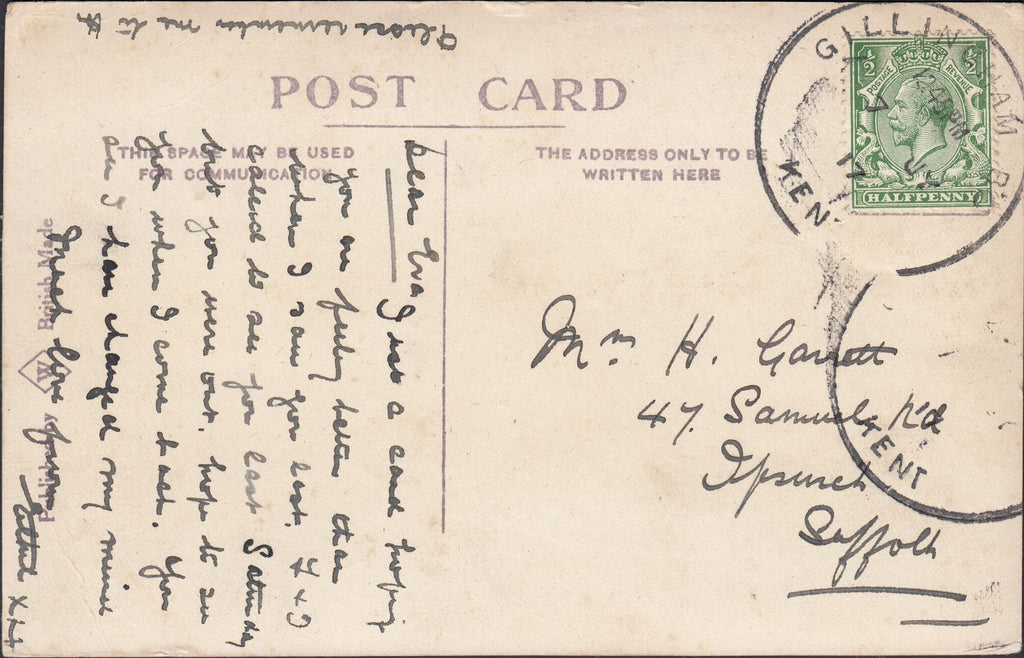 POST CARD
THIS SPACE MAY BE USED
FOR COMMUNICATION
THE ADDRESS ONLY TO BE
WRITTEN HERE
GILLINGHAM
12.45 PM
17
KENT
½ ½
POSTAGE REVENUE
HALFPENNY
KENT
Dear Eva
Just a card hoping
you are feeling better than
when I saw you last. F & I
called to see you last Saturday
but you were out. hope to see
you when I come back. You
see I have changed my mind
Much love from
Ethel x++
Please remember me to H
Mrs H. Garrett
47. Samuel R'd
Ipswich
Suffolk
British Made
W